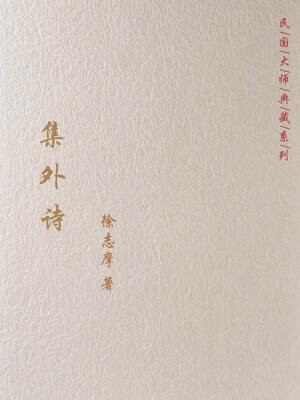 民国大师典藏系列
集外诗
徐志摩 著